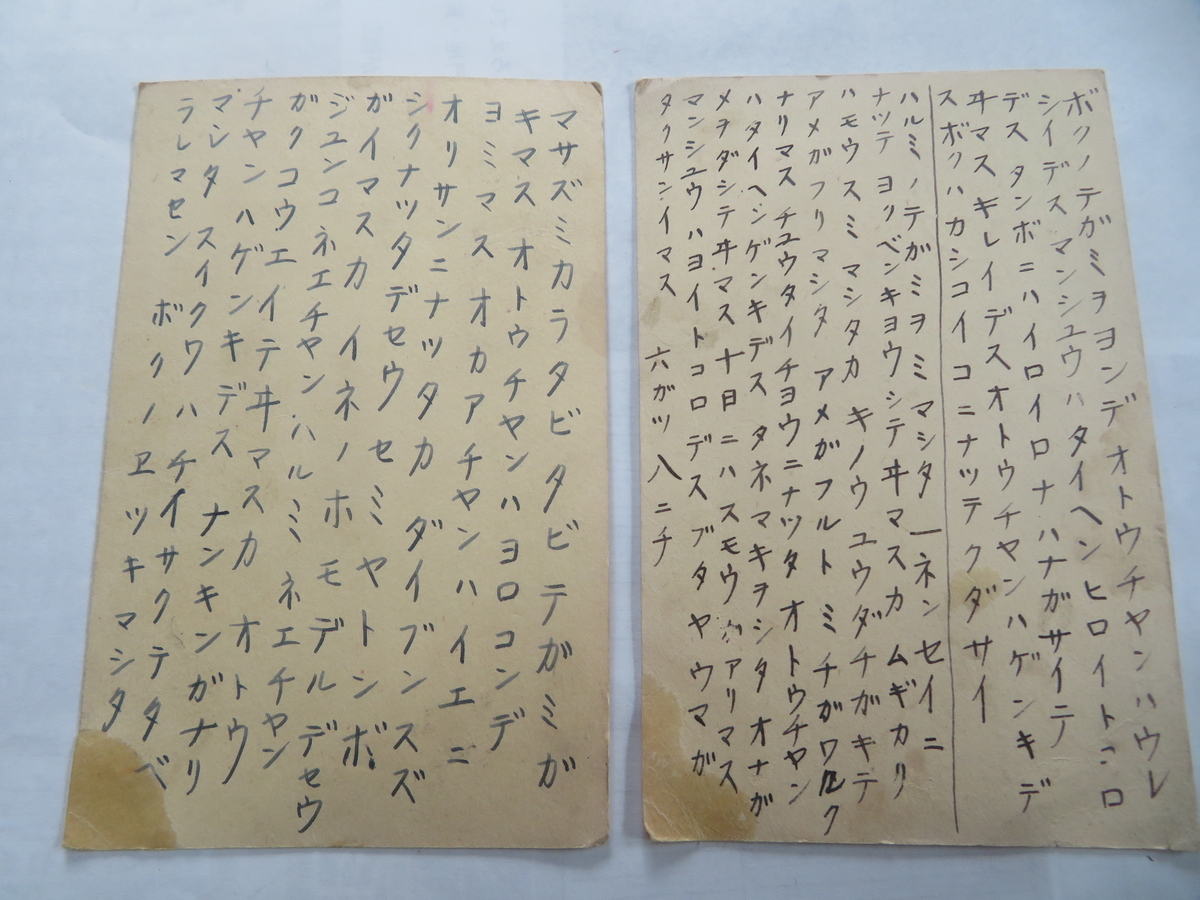 ボクノテガミヲヨンデ オトウチヤンハウレ
シイデス マンシユウハ タイヘン ヒロイトコロ
デス タンボニハイロイロナ ハナガサイテ
ヰマスキレイデスオトウチヤンハゲンキデ
スボクハカシコイコニナツテクダサイ
ハルミノテガミヲミマシタ 一ネンセイニ
ナツテ ヨクベンキヨウシテヰマスカ ムギカリ
ハモウスミマシタカ キノウ ユウダチガキテ
アメガフリマシタ アメガフルト ミチガワルク
ナリマス チユウタイチヨウニナツタ オトウチヤン
ハタイヘンゲンキデス タネマキヲシタ オナガ
メヲダシテヰマス 十日ニハスモウガアリマス
マンシユウハヨイトコロデス ブタヤウマガ
タクサンイマス 六ガツ 八ニチ
マサズミカラタビタビテガミガ
キマス オトウチヤンハヨロコンデ
ヨミマス オカアチヤンハイエニ
オリサンニナツタカ ダイブンスズ
シクナツタデセウ セミヤトンボ
ガイマスカ イネノホモデルデセウ
ジユンコネエチヤンハルミネエチヤン
ガクコウエイテヰマスカ オトウ
チヤンハゲンキデス ナンキンガナリ
マシタ スイクワハチイサクテタベ
ラレマセン ボクノヱツキマシタ